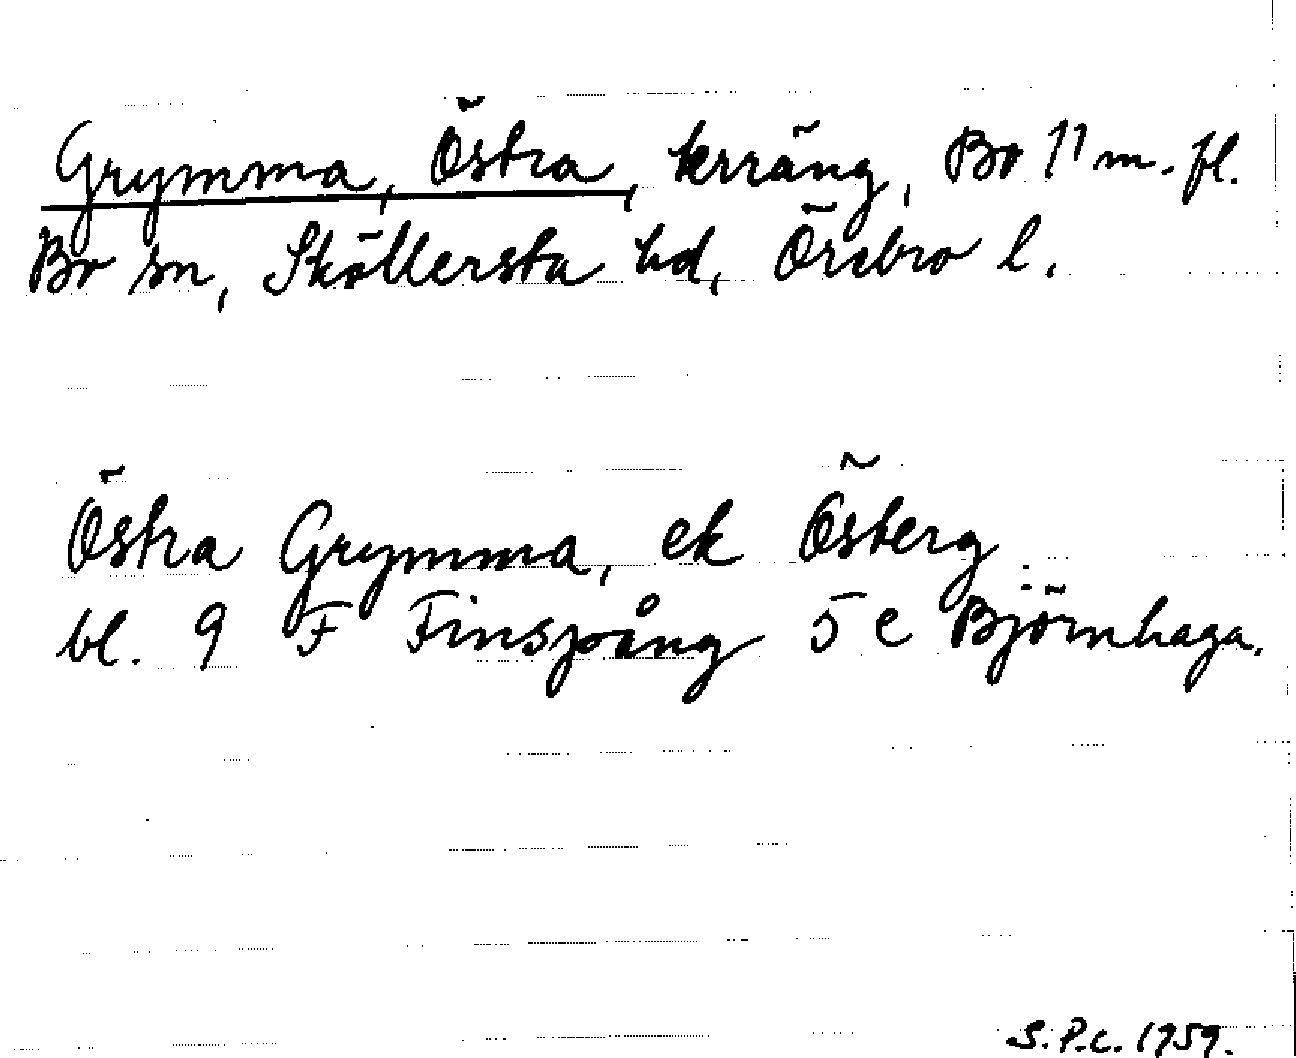 Grymma, Östra, terräng, Bo 11 m. fl.
Bo sn, Sköllersta hd, Örebro l.
Östra Grymma, ek Ösberg
bl. 9 F Finspång 5 e Björnhaga.
S.P.c. 1959.